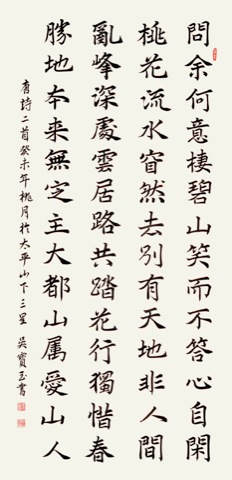 問余何意棲碧山笑而不答心自閑
桃花流水窅然去別有天地非人間
亂峰深處雲居路共踏花行獨惜春
勝地本来無定主大都山属愛山人
唐詩二首癸未年桃月於太平山下三星 吳寶玉書